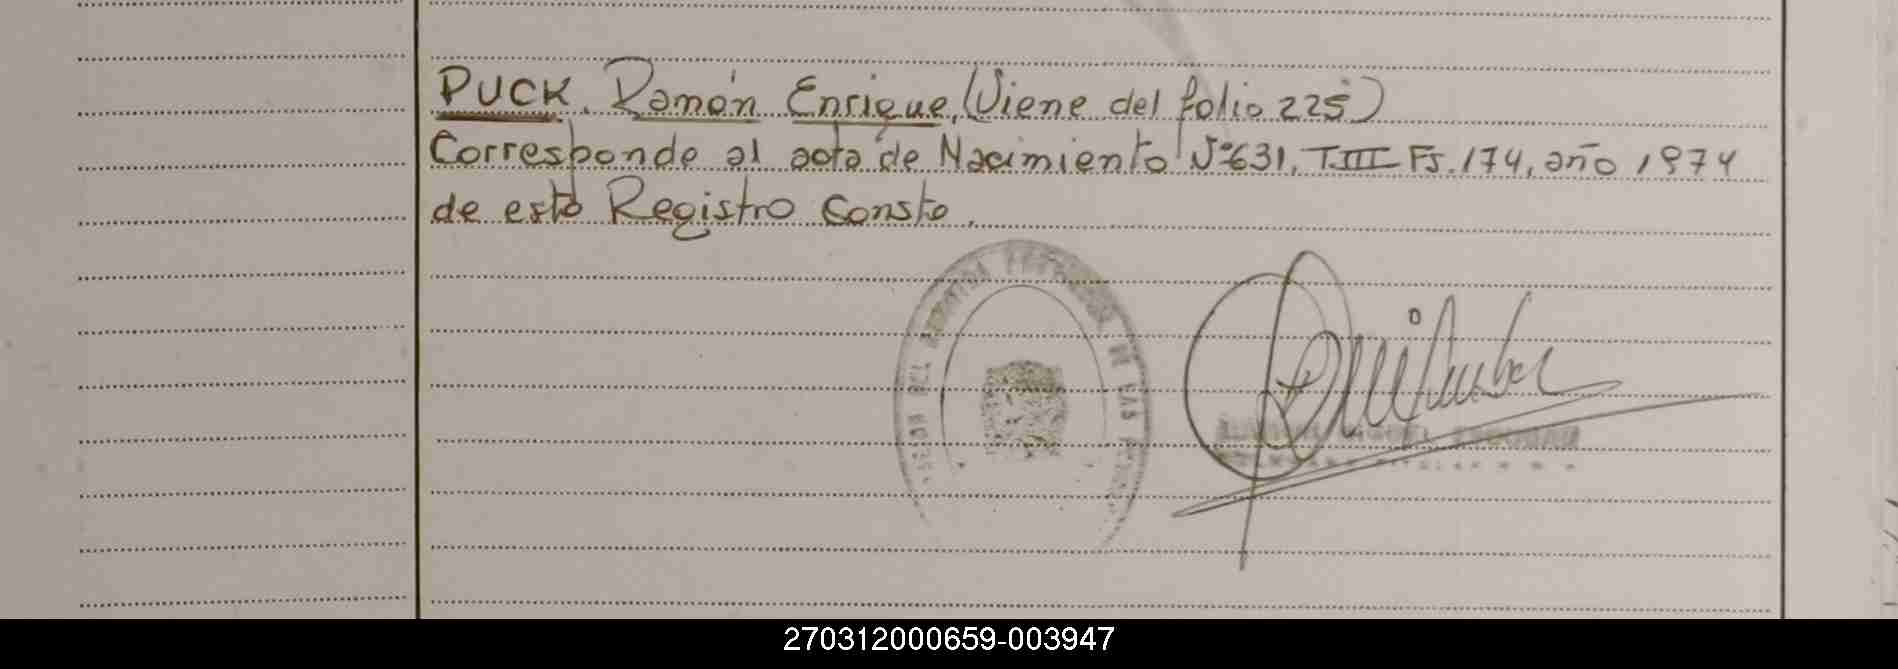 PUCK. Ramón Enrique, (Viene del folio 225)
Corresponde al acta de Nacimiento Nº 631, T. III Fs. 174, año 1974
de este Registro Conste.
DE LAS
270312000659-003947